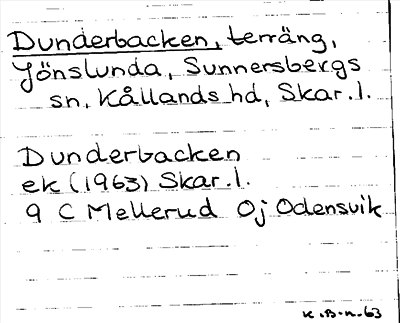 Dunderbacken, terräng,
Jönslunda, Sunnersbergs
sn, Kållands hd, Skar.l.
Dunderbacken
ek (1963) Skar.l.
9 C Mellerud Oj Odensvik
K.B-n.-63